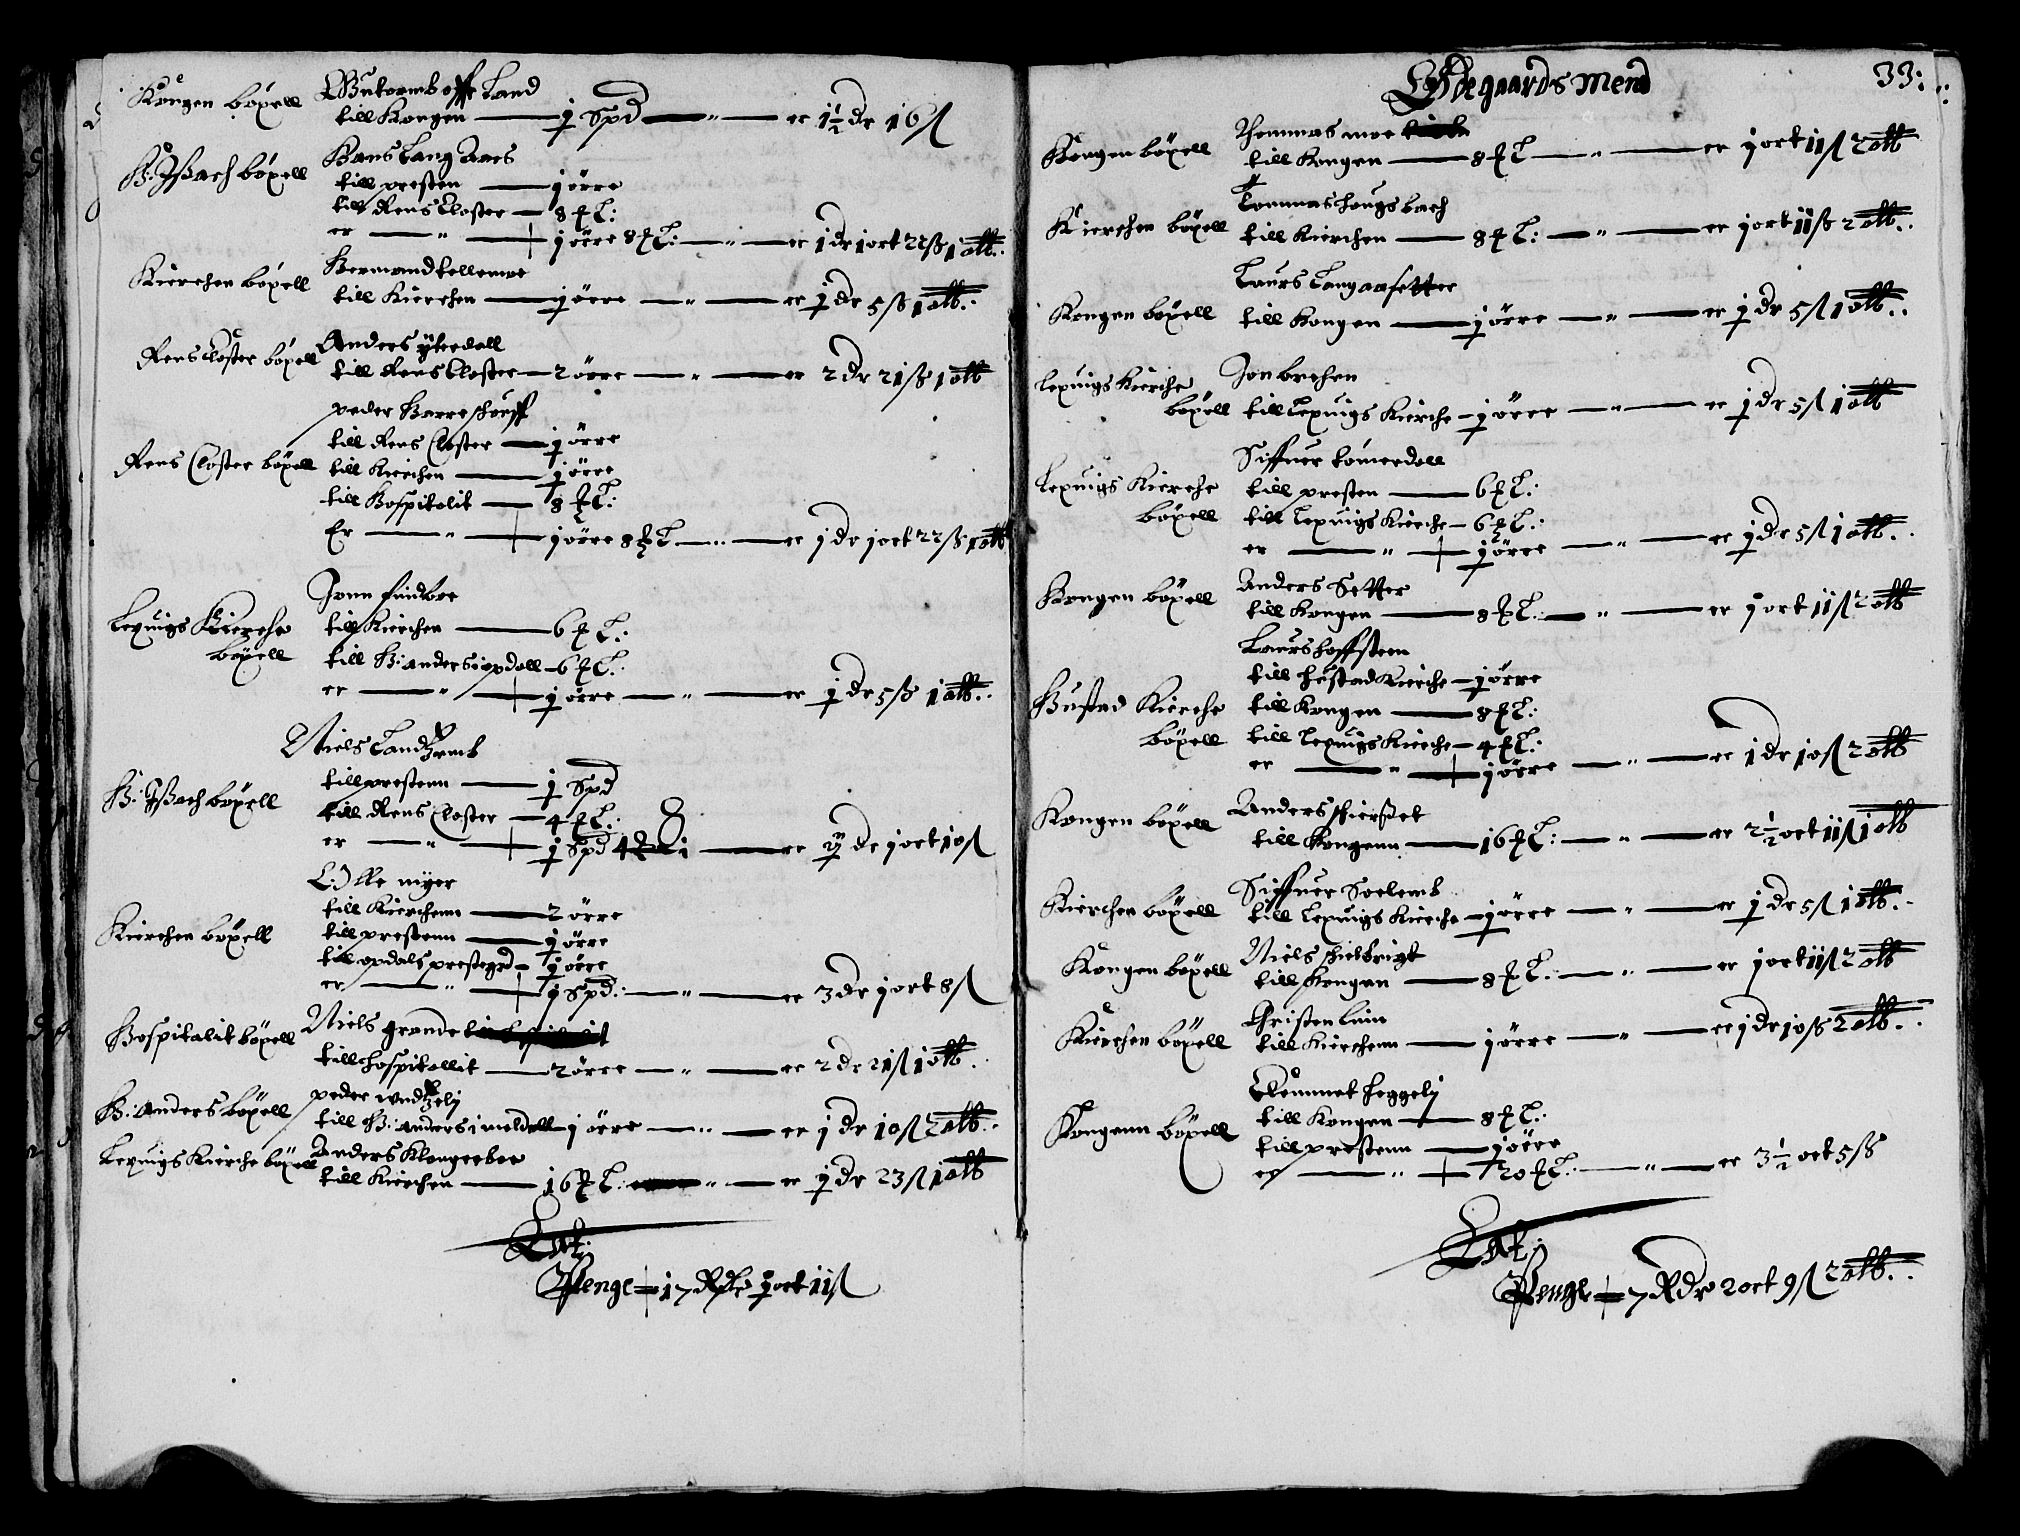 Kongen böxell
Gutormb off Land
till Kongen — j Spd — er 1½ dr 16 ß
H: Jßach böxell
Hans Lang Aaes
till presten — j örre
till Rens Closter — 8 ȹ L:
er — j örre 8 ȹ L: — er 1 dr 1 ort 22 ß 1 alb.
Kierchen böxell
Hermand tellemoe
till Kierchen — j örre — er j dr 5 ß 1 alb.
Rens Closter böxell
Anders ÿterdall
till Rens Closter — 2 örre — er 2 dr 21 ß 1 alb
Rens Closter böxell
peder Harreschouff
till Rens Closter — j örre
till Kierchen — j örre
till Hospitalit — 8 ȹ L:
Er — j örre 8 ȹ L — er j dr j ort 22 ß 1 alb
Lexuigs Kierche
böxell
Jonn findboe
till Kierchen — 6 ȹ L:
till H: anders i opdall — 6 ȹ L:
er — j örre — er j dr 5 ß 1 alb.
H: Jßach böxell
Niels Landtzemb
till prestenn — j Spd
till Rens Closter — 4 ȹ L:
er — j Spd 4 — er ij dr j ort 10 ß
Kierchen böxell
L: Olle mÿer
till Kierchenn — 2 örre
till prestenn — j örre
till opdals prestegrd — j örre
er — j Spd: — er 3 dr j ort 8 ß
Hospitalit böxell
Niels grande
till hospitallit — 2 örre — er 2 dr 21 ß 1 alb.
H: Anders böxell
peder wndtzelj
till H: anders i meldall — j örre — er j dr 10 ß 2 alb.
Lexuigs Kierche böxell
Anders Klongerboe
till Kierchen — 16 ȹ L: — er j dr 23 ß 1 alb
Lat:
Penge — 17 Rdr j ort 11 ß
33:
Ödegaards Mend
Kongen böxell
Thommas moe
till Kongen — 8 ȹ L — er j ort 11 ß 2 alb
Kierchen böxell
Tommas hougsbach
till Kierchen — 8 ȹ L: — er j ort 11 ß 2 alb.
Kongen böxell
Laurs Langaasetter
till Kongen — j örre — er j dr 5 ß 1 alb.
Lexuigs Kierche
böxell
Jon brehen
till Lexuigs Kierche — j örre — er j dr 5 ß 1 alb
Lexuigs Kierche
böxell
Siffuer tömerdall
till presten — 6 ȹ L:
till Lexuigs Kierche — 6 ȹ L:
er — j örre — er j dr 5 ß 1 alb.
Kongen böxell
Anders Setter
till Kongen — 8 ȹ L: — er j ort 11 ß 2 alb
Hustad Kierche
böxell
Laurs hoffsteen
till hustad Kierche — j örre
till Kongen — 8 ȹ L:
till Lexuigs Kierche — 4 ȹ L:
er — j örre — er 1 dr 10 ß 2 alb
Kongen böxell
Anders skierßet
till Kongenn — 16 ȹ L: — er 2½ ort 11 ß 1 alb
Kierchen böxell
Siffuer Soelemb
till Lexuigs Kierche — j örre — er j dr 5 ß 1 alb.
Kongen böxell
Niels skielbrigt
till Kongen — 8 ȹ L: — er j ort 11 ß 2 alb
Kierchen böxell
Christen Liim
till Kierchenn — j örre — er j dr 10 ß 2 alb.
Kongenn böxell
Gummet heggelj
till Kongen — 8 ȹ L:
till prestenn — j örre
er — 20 ȹ L: — er 3½ ort 5 ß
Lat:
Penge — 7 Rdr 2 ort 9 ß 2 alb.